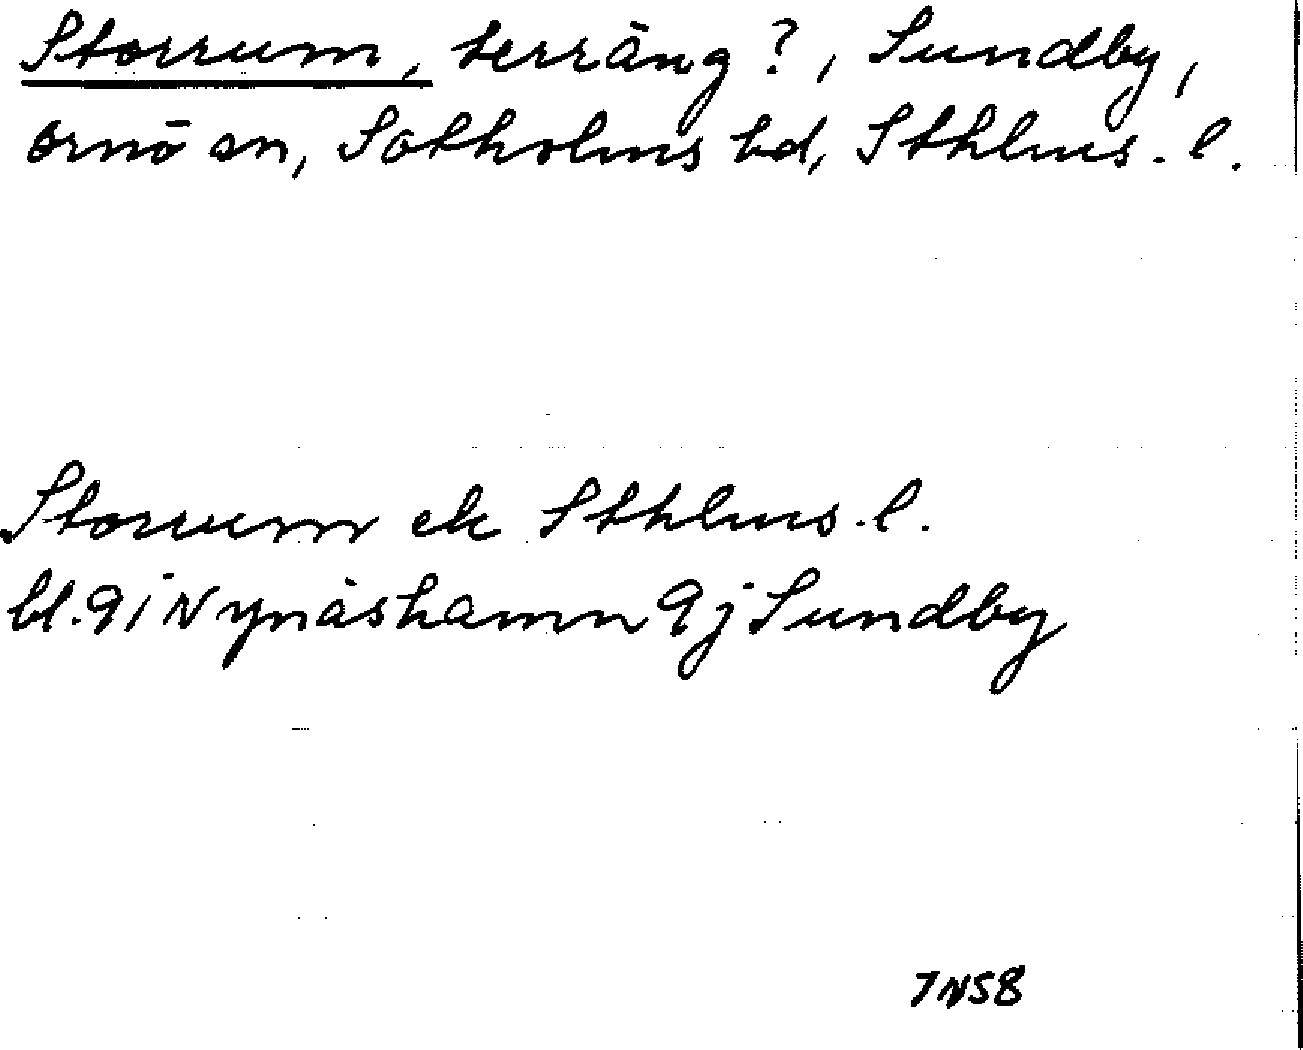 Storrum, terräng?, Sundby,
Ornö sn, Sotholms hd, Sthlms. l.
Storrum ek Sthlms. l.
bl. 9i Nynäshamn 9j Sundby
7NSB